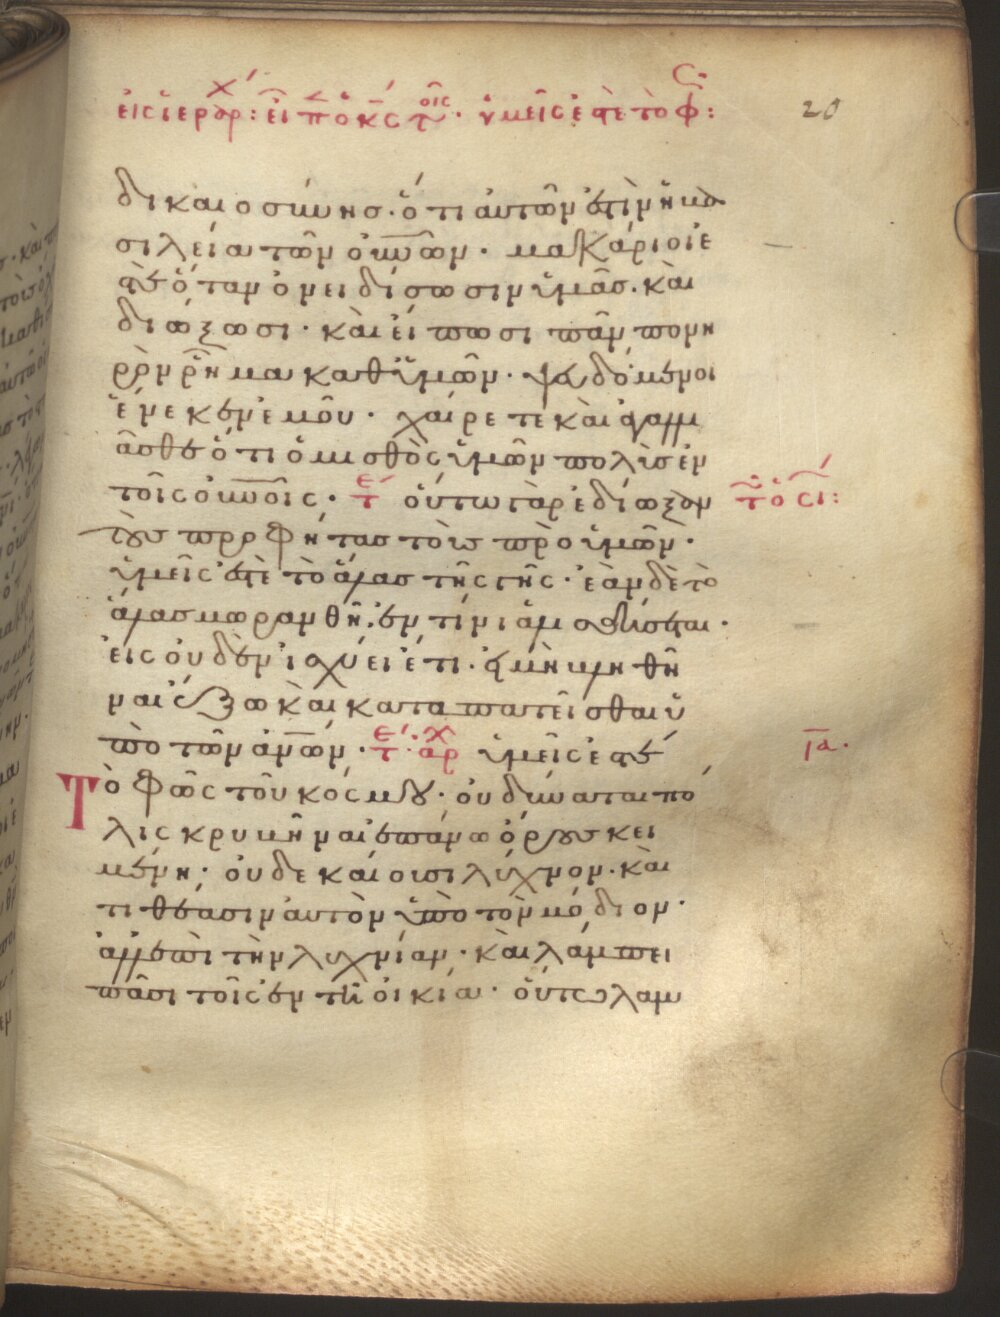 εἰς ἱεράρχ: εἶπ ὁ κς τοῖς · ὑμεῖς ἐστὲ τὸ φ:
20
δικαιοσύνησ· ὅτι αὐτῶν ἐστὶν ἡ βα
σιλεία τῶν οὐνῶν · μακάριοι ἐ
στὲ ὅταν ὀνειδίσωσιν ὑμᾶσ· καὶ
διώξωσι · καὶ εἴπωσι πᾶν πονη
ρὸν ῥῆμα καθ ὑμῶν · ψευδόμενοι
ἕνεκεν ἐμοῦ · χαίρετε καὶ ἀγαλλι
ᾶσθε ὅτι ὁ μισθὸς ὑμῶν πολὺσ ἐν
τοῖς οὐνοῖς · τε οὕτω γὰρ ἐδίωξαν
τοὺσ προφήτασ τοὺσ πρὸ ὑμῶν ·
ὑμεῖς ἐστὲ τὸ ἅλασ τῆς γῆς · ἐὰν δὲ τὸ
ἅλασ μωρανθῆ· ἐν τίνι ἁλισθήσεται ·
εἰς οὐδὲν ἰσχύει ἔτι · εἰ μὴ βληθῆ
ναι ἔξω καὶ καταπατεῖσθαι ὑ
πὸ τῶν ἀνων · τε · αρχ ὑμεῖς ἐστὲ
ια ·
Τὸ φῶς τοῦ κόσμου · οὐ δύναται πό
λις κρυβῆναι ἐπάνω ὄρουσ κει
μένη · οὐδε καίουσι λύχνον · καὶ
τιθέασιν αὐτὸν ὑπὸ τὸν μόδιον ·
ἀλλ ἐπὶ τὴν λυχνίαν · καὶ λάμπει
πᾶσι τοῖς ἐν τῆ οἰκία · οὕτω λαμ